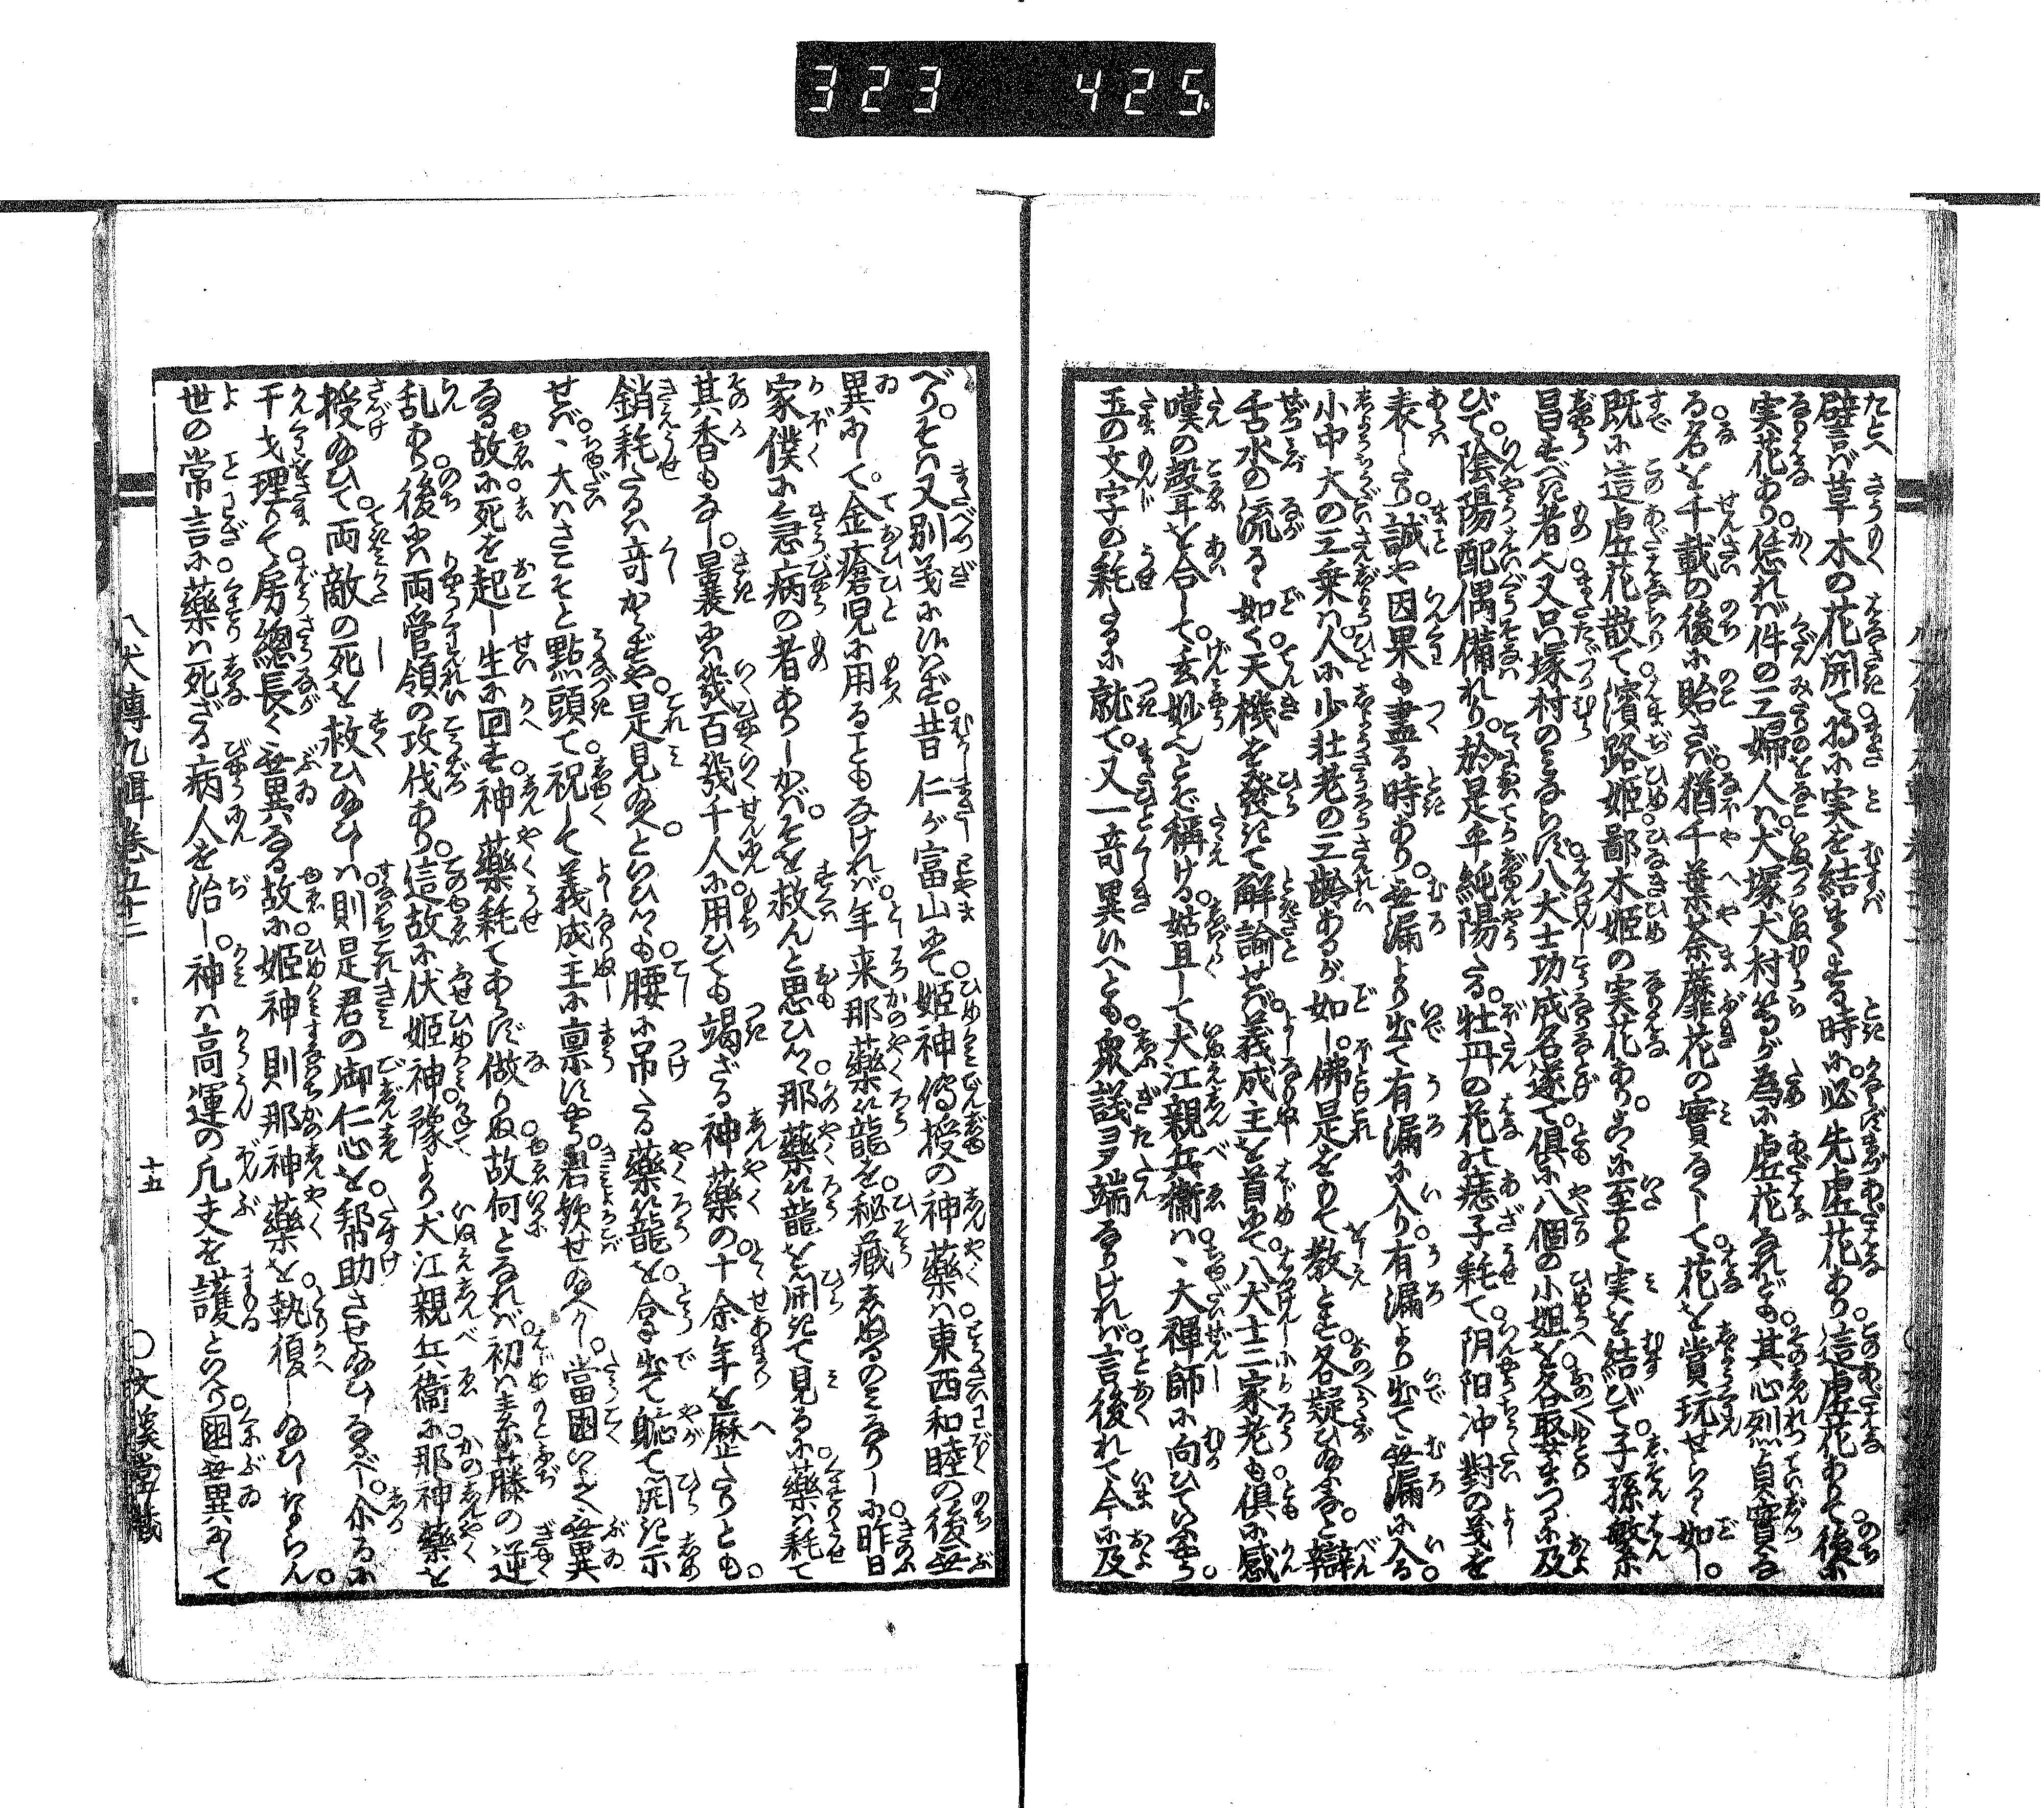 323 425
譬言ば草木の花開て將に実を結まくする時に必先虚花あり這虚花ありて後に
実花あり恁れば件の二婦人は犬塚犬村等が為に虚花なれども其心烈貞實な
る名を千載の後に貽さば猶千葉茶蘼花の實なくして花を賞玩せらるゝ如し
既に這虚花散て濱路姫鄙木姫の実花あり爰に至りて実を結びて子孫繁
昌すべき者也又只塚村のみならず八犬士功成名遂て倶に八個の小姐を各娶まつるに及
びて陰陽配偶備れり於是乎純陽たる牡丹の花の痣子耗て阴阳冲對の義を
表したり誠や因果も盡る時あり無漏より出て有漏に入り有漏より出て無漏に入る
小中大の三乗は人に少壮老の三齢あるが如し佛是をもて教とす各疑ひ給ふなと辯
舌水の流るゝ如く天機を發きて解諭せば義成主を首にて八犬士二家老も倶に感
嘆の聲を合して玄妙也とぞ稱ける姑且して犬江親兵衛は丶大禪師に向ひていふやう
玉の文字の耗たるに就て又一竒異いへども衆議ヨタ端なりければ言後れて今に及
べりそは又別義にいはず昔仁が富山にて姫神傳授の神藥は東西和睦の後無
異にして金瘡児に用ることもなければ年来那藥籠を秘藏したるのみなりしに昨日
家僕に急病の者ありしかばそを救んと思ひつゝ那藥籠を開きて見るに藥は耗て
其香もなし曩には幾百幾千人に用ひても竭ざる神藥の十余年を歴たりとも
銷耗たるは竒からずや是見給へといひつゝも腰に吊たる藥籠を拿出て軈て開き示
せば丶大はさこそと點頭て祝して義成主に禀すやう君歓せ給へかし當國いよゝ無異
なる故に死を起し生に回す神藥耗てあらず做りぬ故何となれば初は素藤の逆
乱あり後には両管領の攻伐あり這故に伏姫神豫より犬江親兵衛に那神藥を
授給ひて両敵の死を救ひ給ひしは則是君の御仁心を帮助させ給ひしなるべし介るに
干戈理りて房總長く無異なる故に姫神則那神藥を執復し給ひしならん
世の常言に藥は死ざる病人を治し神は高運の凡夫を護といへり國無異にして
八犬傳九輯卷五十二
十五
文溪堂藏